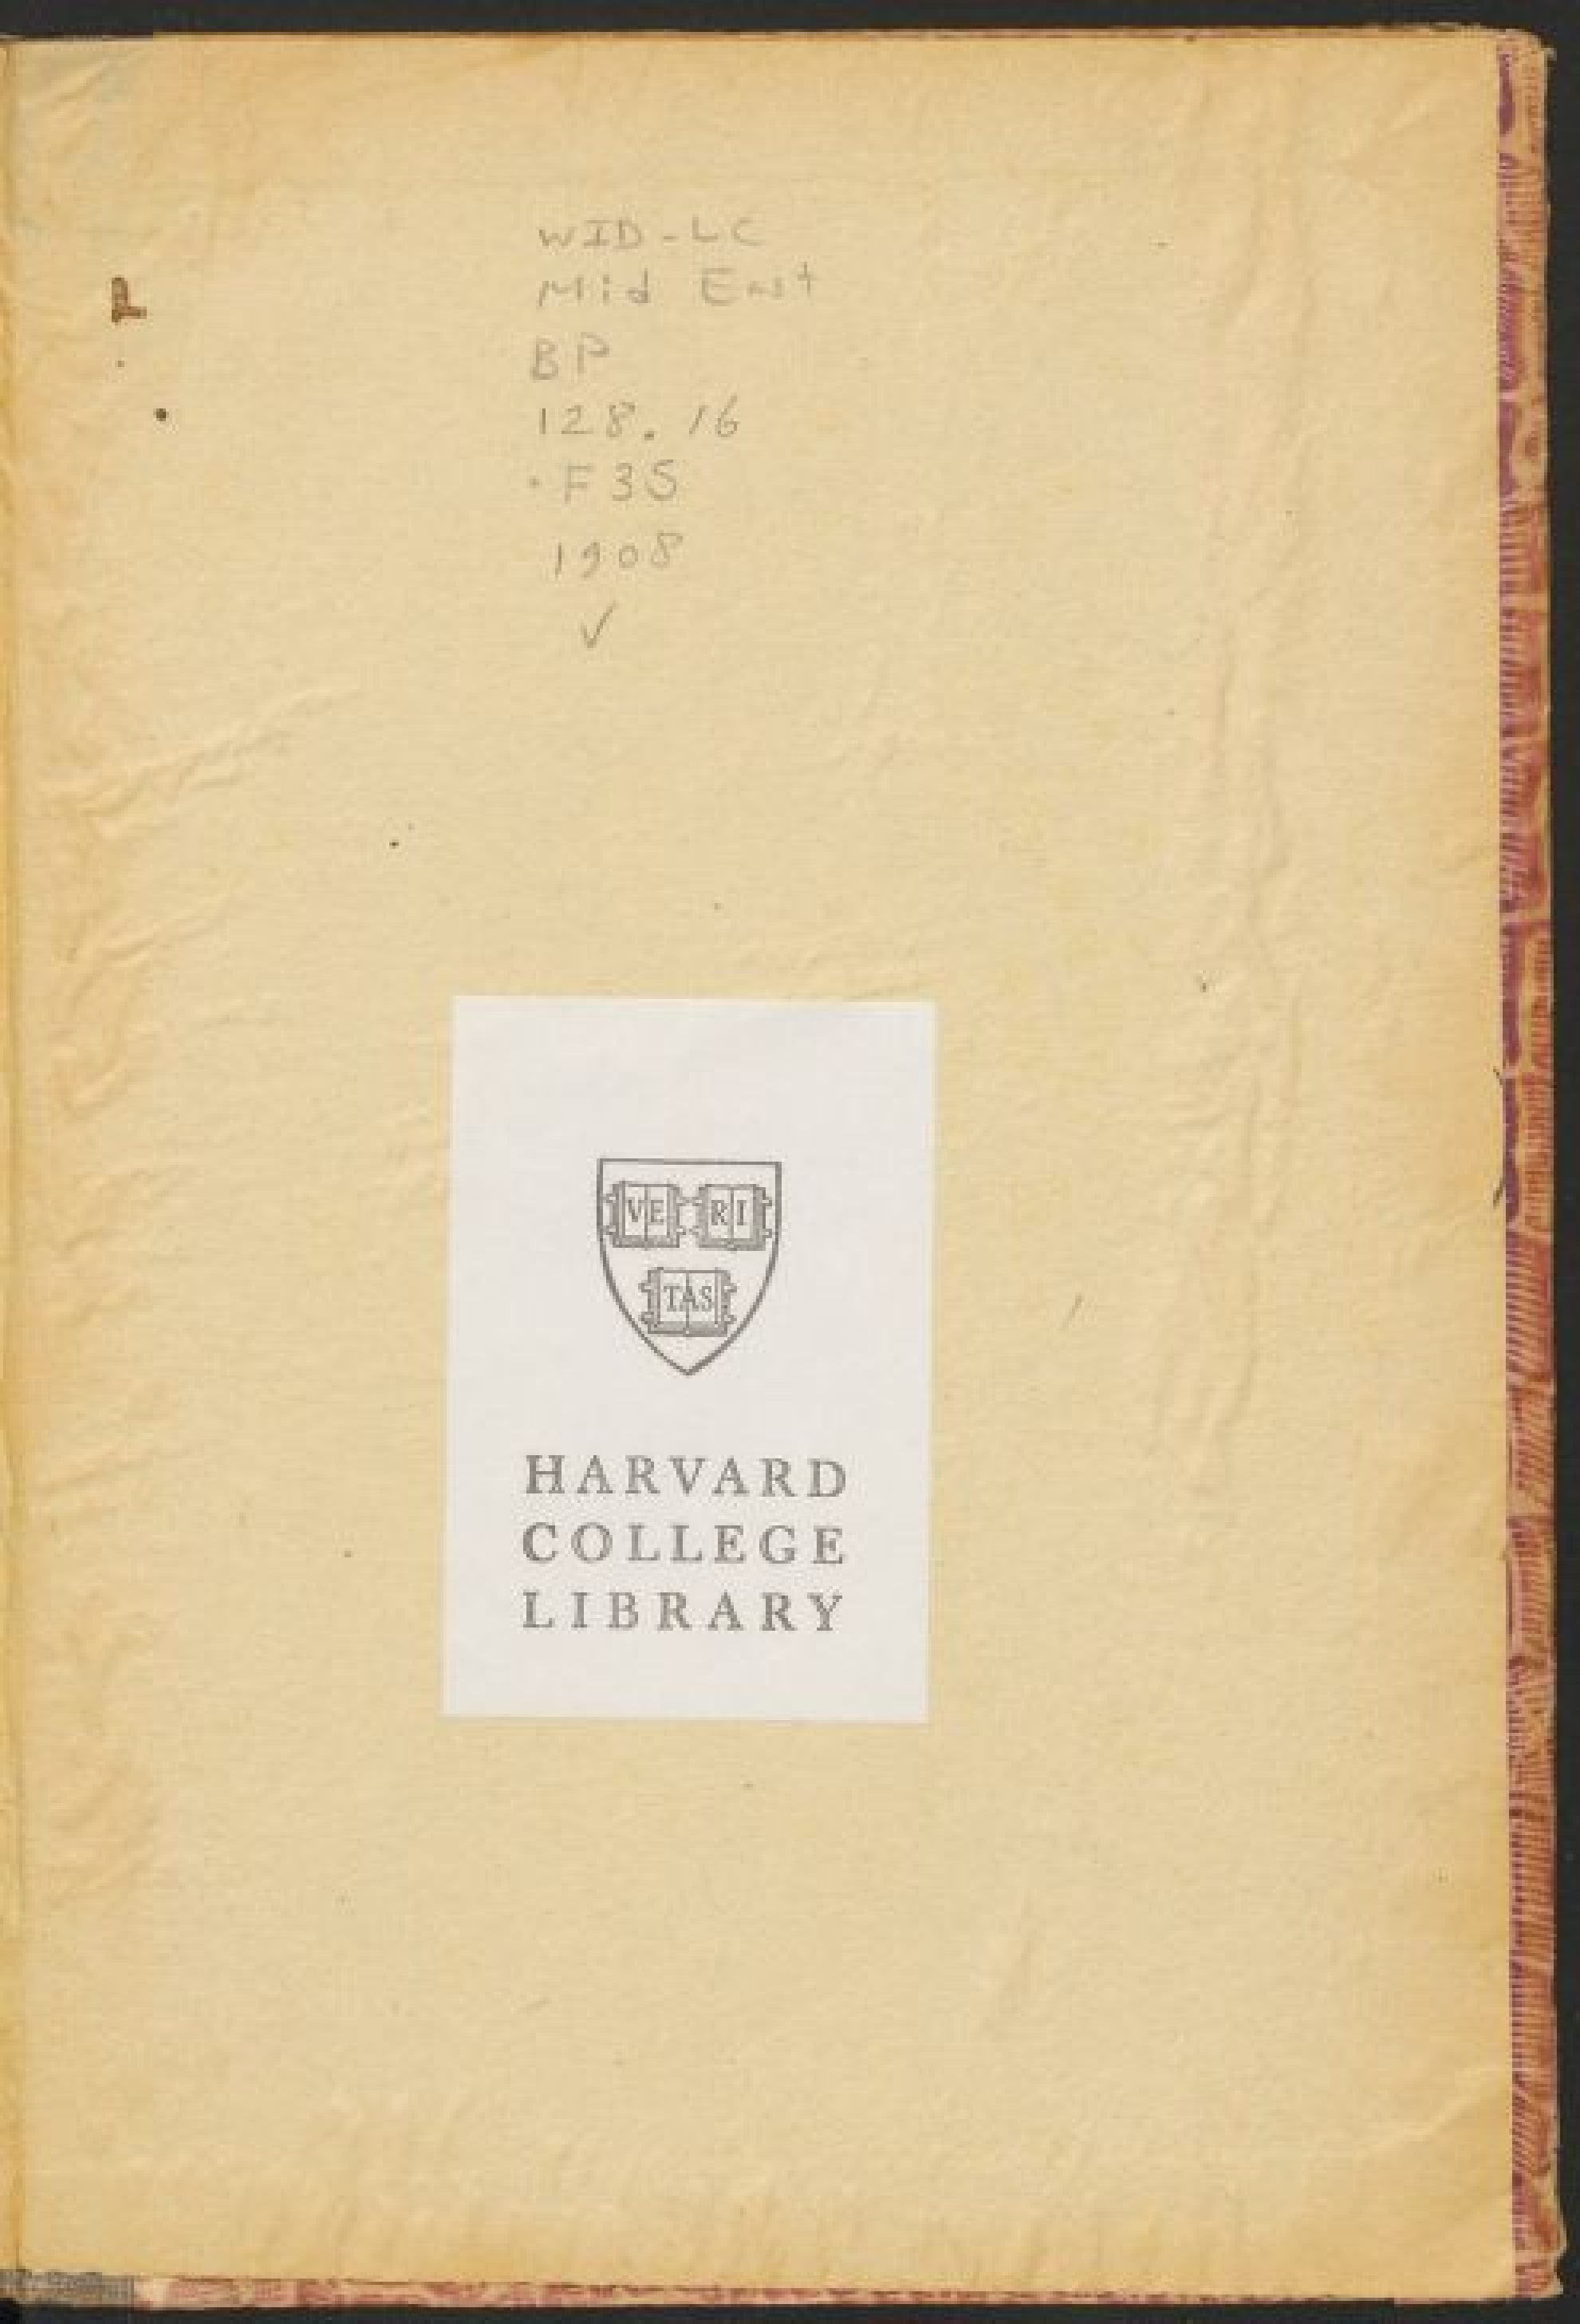 WID-LC
Mid East
BP
128.16
.F35
1908
VE RI
TAS
HARVARD
COLLEGE
LIBRARY